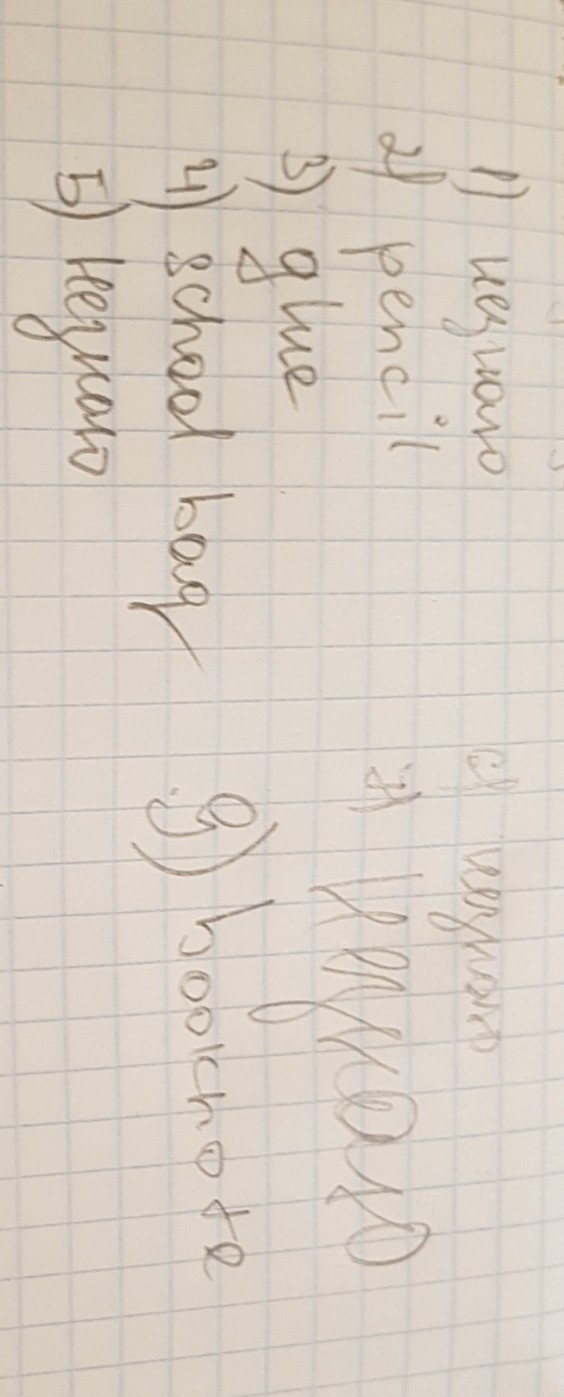 1) незнаю
2) pencil
3) glue
4) school bag
5) незнаю
6) незнаю
7) незнаю
9) booknote